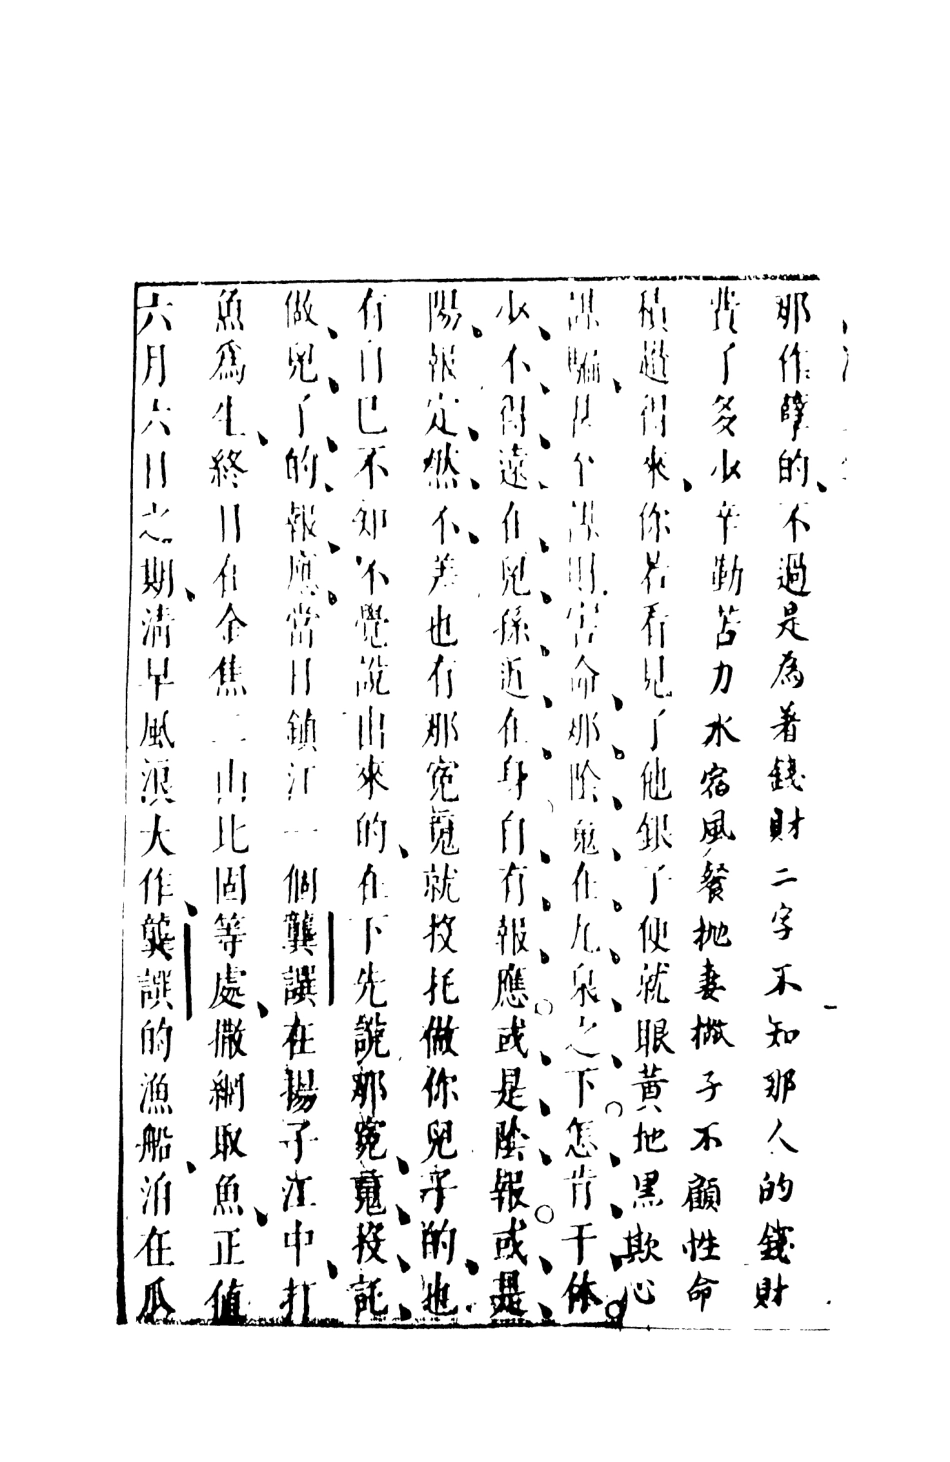 那作孽的不過是為著錢財二字不知那人的錢財
費了多少辛勤苦力水宿風餐拋妻撇子不顧性命
積趲得來你若看見了他銀子便就眼黃地黑欺心
謀騙甚至謀財害命那陰䰟在九泉之下怎肯干休
少不得遠在兒孫近在身自有報應或是陰報或是
陽報定然不差也有那寃䰟就投托做你兒子的也
有自巳不知不覺說出來的在下先說那寃䰟投託
做兒了的報應當日鎮江一個龔譔在揚子江中打
魚爲生終日在金焦二山北固等處撒網取魚正値
六月六日之期淸早風浪大作龔譔的漁船泊在瓜